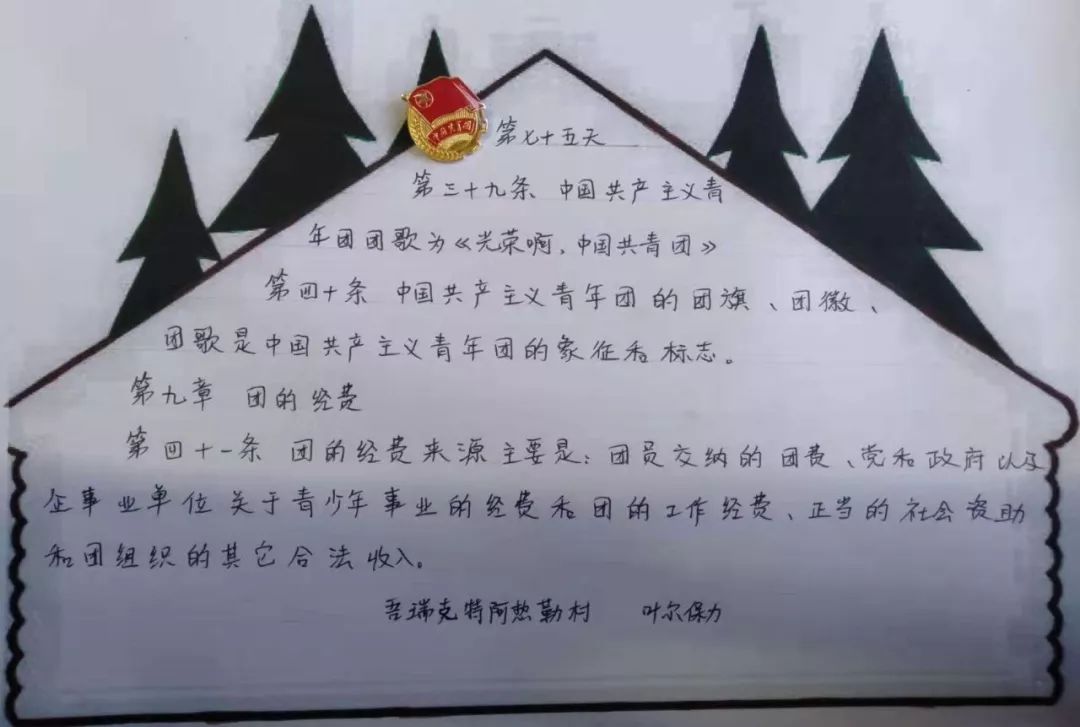 中国共青团
第七十五天
第三十九条 中国共产主义青
年团团歌为《光荣啊,中国共青团》
第四十条 中国共产主义青年团的团旗、团徽、
团歌是中国共产主义青年团的象征和标志。
第九章 团的经费
第四十一条 团的经费来源主要是:团员交纳的团费、党和政府以及
企事业单位关于青少年事业的经费和团的工作经费、正当的社会资助
和团组织的其它合法收入。
吾瑞克特阿热勒村 叶尔保力